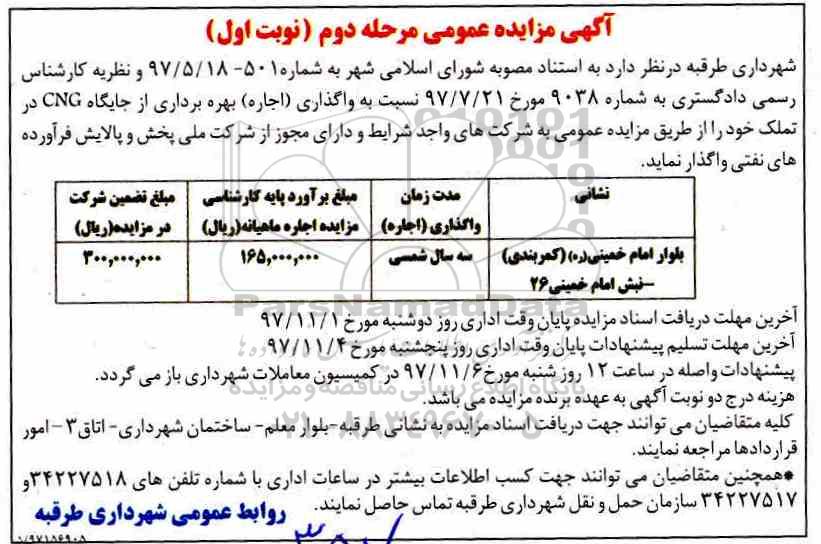 آگهی مزایده عمومی مرحله دوم (نوبت اول)
شهرداری طرقبه درنظر دارد به استناد مصوبه شورای اسلامی شهر به شماره۵۰۱- ۹۷/۵/۱۸ و نظریه کارشناس
رسمی دادگستری به شماره ۹۰۳۸ مورخ ۹۷/۷/۲۱ نسبت به واگذاری (اجاره) بهره برداری از جایگاه CNG در
تملک خود را از طریق مزایده عمومی به شرکت های واجد شرایط و دارای مجوز از شرکت ملی پخش و پالایش فرآورده
های نفتی واگذار نماید.
نشانی
مدت زمان واگذاری (اجاره)
مبلغ برآورد پایه کارشناسی مزایده اجاره ماهیانه(ریال)
مبلغ تضمین شرکت در مزایده(ریال)
بلوار امام خمینی(ره) (کمربندی) –نبش امام خمینی۲۶
سه سال شمسی
۱۶۵,۰۰۰,۰۰۰
۳۰۰,۰۰۰,۰۰۰
آخرین مهلت دریافت اسناد مزایده پایان وقت اداری روز دوشنبه مورخ ۹۷/۱۱/۱
آخرین مهلت تسلیم پیشنهادات پایان وقت اداری روز پنجشنبه مورخ ۹۷/۱۱/۴
پیشنهادات واصله در ساعت ۱۲ روز شنبه مورخ۹۷/۱۱/۶ در کمیسیون معاملات شهرداری باز می گردد.
هزینه درج دو نوبت آگهی به عهده برنده مزایده می باشد.
کلیه متقاضیان می توانند جهت دریافت اسناد مزایده به نشانی طرقبه-بلوار معلم- ساختمان شهرداری- اتاق۳ – امور
قراردادها مراجعه نمایند.
*همچنین متقاضیان می توانند جهت کسب اطلاعات بیشتر در ساعات اداری با شماره تلفن های ۳۴۲۲۷۵۱۸و
۳۴۲۲۷۵۱۷ سازمان حمل و نقل شهرداری طرقبه تماس حاصل نمایند.
روابط عمومی شهرداری طرقبه
۱/۹۷۱۸۶۹۰۸
ParsNamadData
پایگاه اطلاع رسانی مناقصه و مزایده
۰۲۱-۸۸۳۴۹۶۷۰-۵